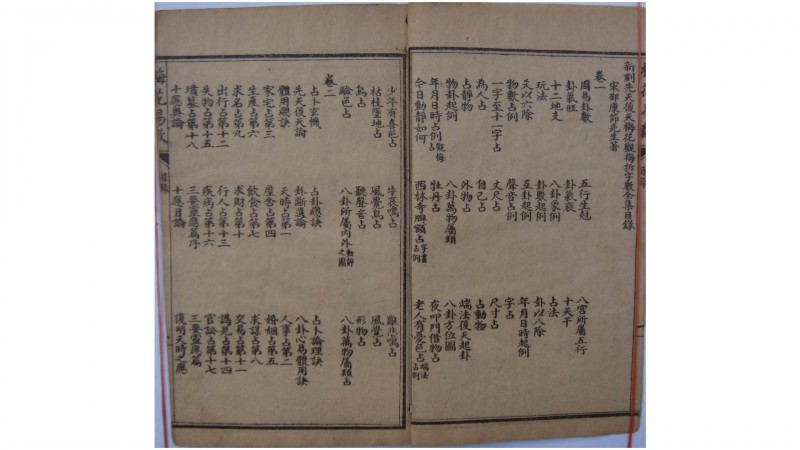 新刻先天後天梅花觀梅拆字數全集目錄
宋邵康節先生著
卷一
周易卦數 五行生剋 八宮所屬五行
卦氣旺 卦氣衰 十天干
十二地支 八卦象例 占法
玩法 卦數起例 卦以八除
爻以六除 互卦起例 年月日時起例
物數占例 聲音占例 字占
一字至十一字占 丈尺占 尺寸占
為人占 自己占 占動物
占靜物 外物占 端法後天起卦
物卦起例 八卦萬物屬類 八卦方位圖
年月日時占例觀梅占 牡丹占 夜叩門借物占
今日動靜如何 西林寺牌額占字畫占例 老人有憂色占端法占例
少年有喜色占 牛哀鳴占 雞悲鳴占
枯枝墜地占 風覺鳥占 風覺占
鳥占 聽聲音占 形物占
驗色占 八卦所屬內外動靜之圖 八卦萬物屬類占
卷二
占卜玄機 占卦總訣 占卜論理訣
先天後天論 卦斷遺論 八卦心易體用訣
體用總訣 天時占第一 人事占第二
家宅占第三 屋舍占第四 婚姻占第五
生產占第六 飲食占第七 求謀占第八
求名占第九 求財占第十 交易占第十一
出行占第十二 行人占第十三 謁見占第十四
失物占第十五 疾病占第十六 官訟占第十七
墳墓占第十八 三要靈應篇序 三要靈應篇
十應奧論 十應目論 復明天時之應
梅花易數 目錄